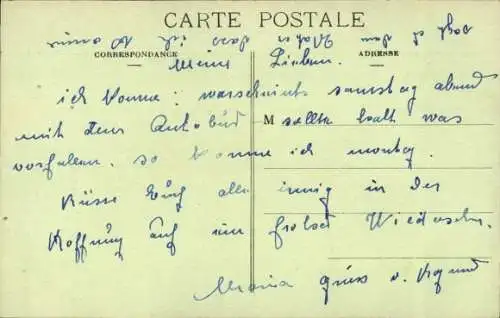 CARTE POSTALE
CORRESPONDANCE
ADRESSE
Meine Lieben.
ich komme: warscheints samstag abend
mit dem Autobus M sollte halt was
vorfallen. so komme ich montag.
Küsse Euch alle innig in der
Hoffnung auf ein frohes Wiedersehn.
Maria